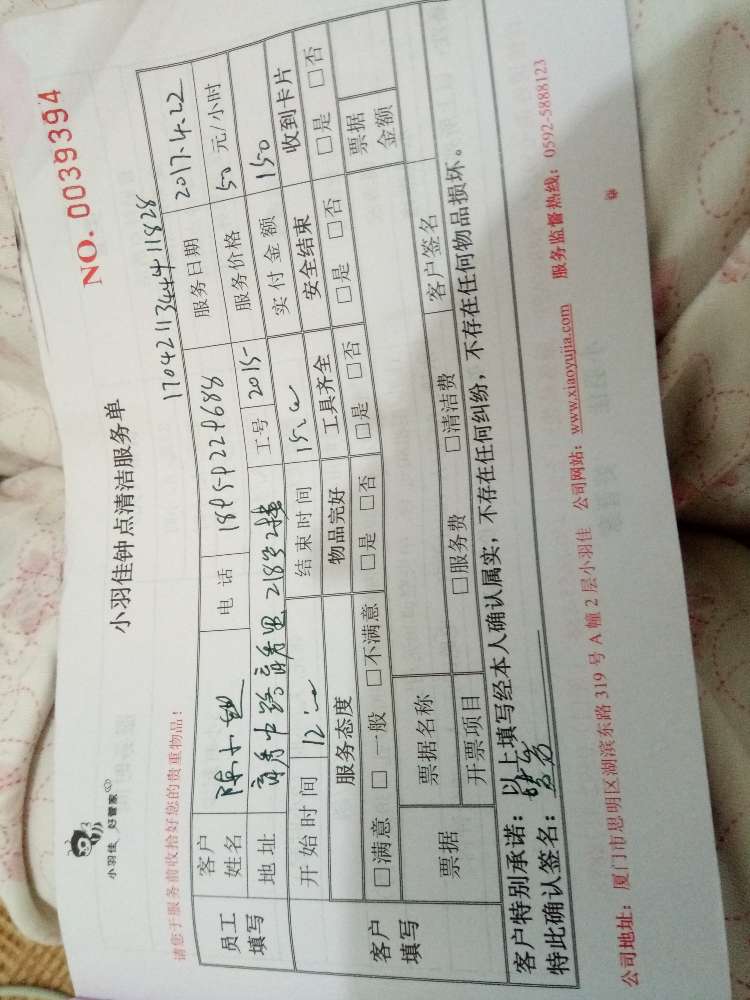 小羽佳 好管家
小羽佳钟点清洁服务单
NO. 0039394
请您于服务前收拾好您的贵重物品!
员工填写
客户姓名 陈小姐 电话 服务日期 2017.4.22
地址 工号 2015 服务价格 50 元/小时
开始时间 12: 结束时间 15: 实付金额 150
客户填写
服务态度 物品完好 工具齐全 安全结束 收到卡片
□满意 □一般 □不满意 □是 □否 □是 □否 □是 □否 □是 □否
票据 票据名称 票据金额
开票项目 □服务费 □清洁费 客户签名
客户特别承诺:以上填写经本人确认属实,不存在任何纠纷,不存在任何物品损坏。
特此确认签名:
公司地址:厦门市思明区湖滨东路 319 号 A 幢 2 层小羽佳 公司网站:www.xiaoyujia.com 服务监督热线:0592-5888123